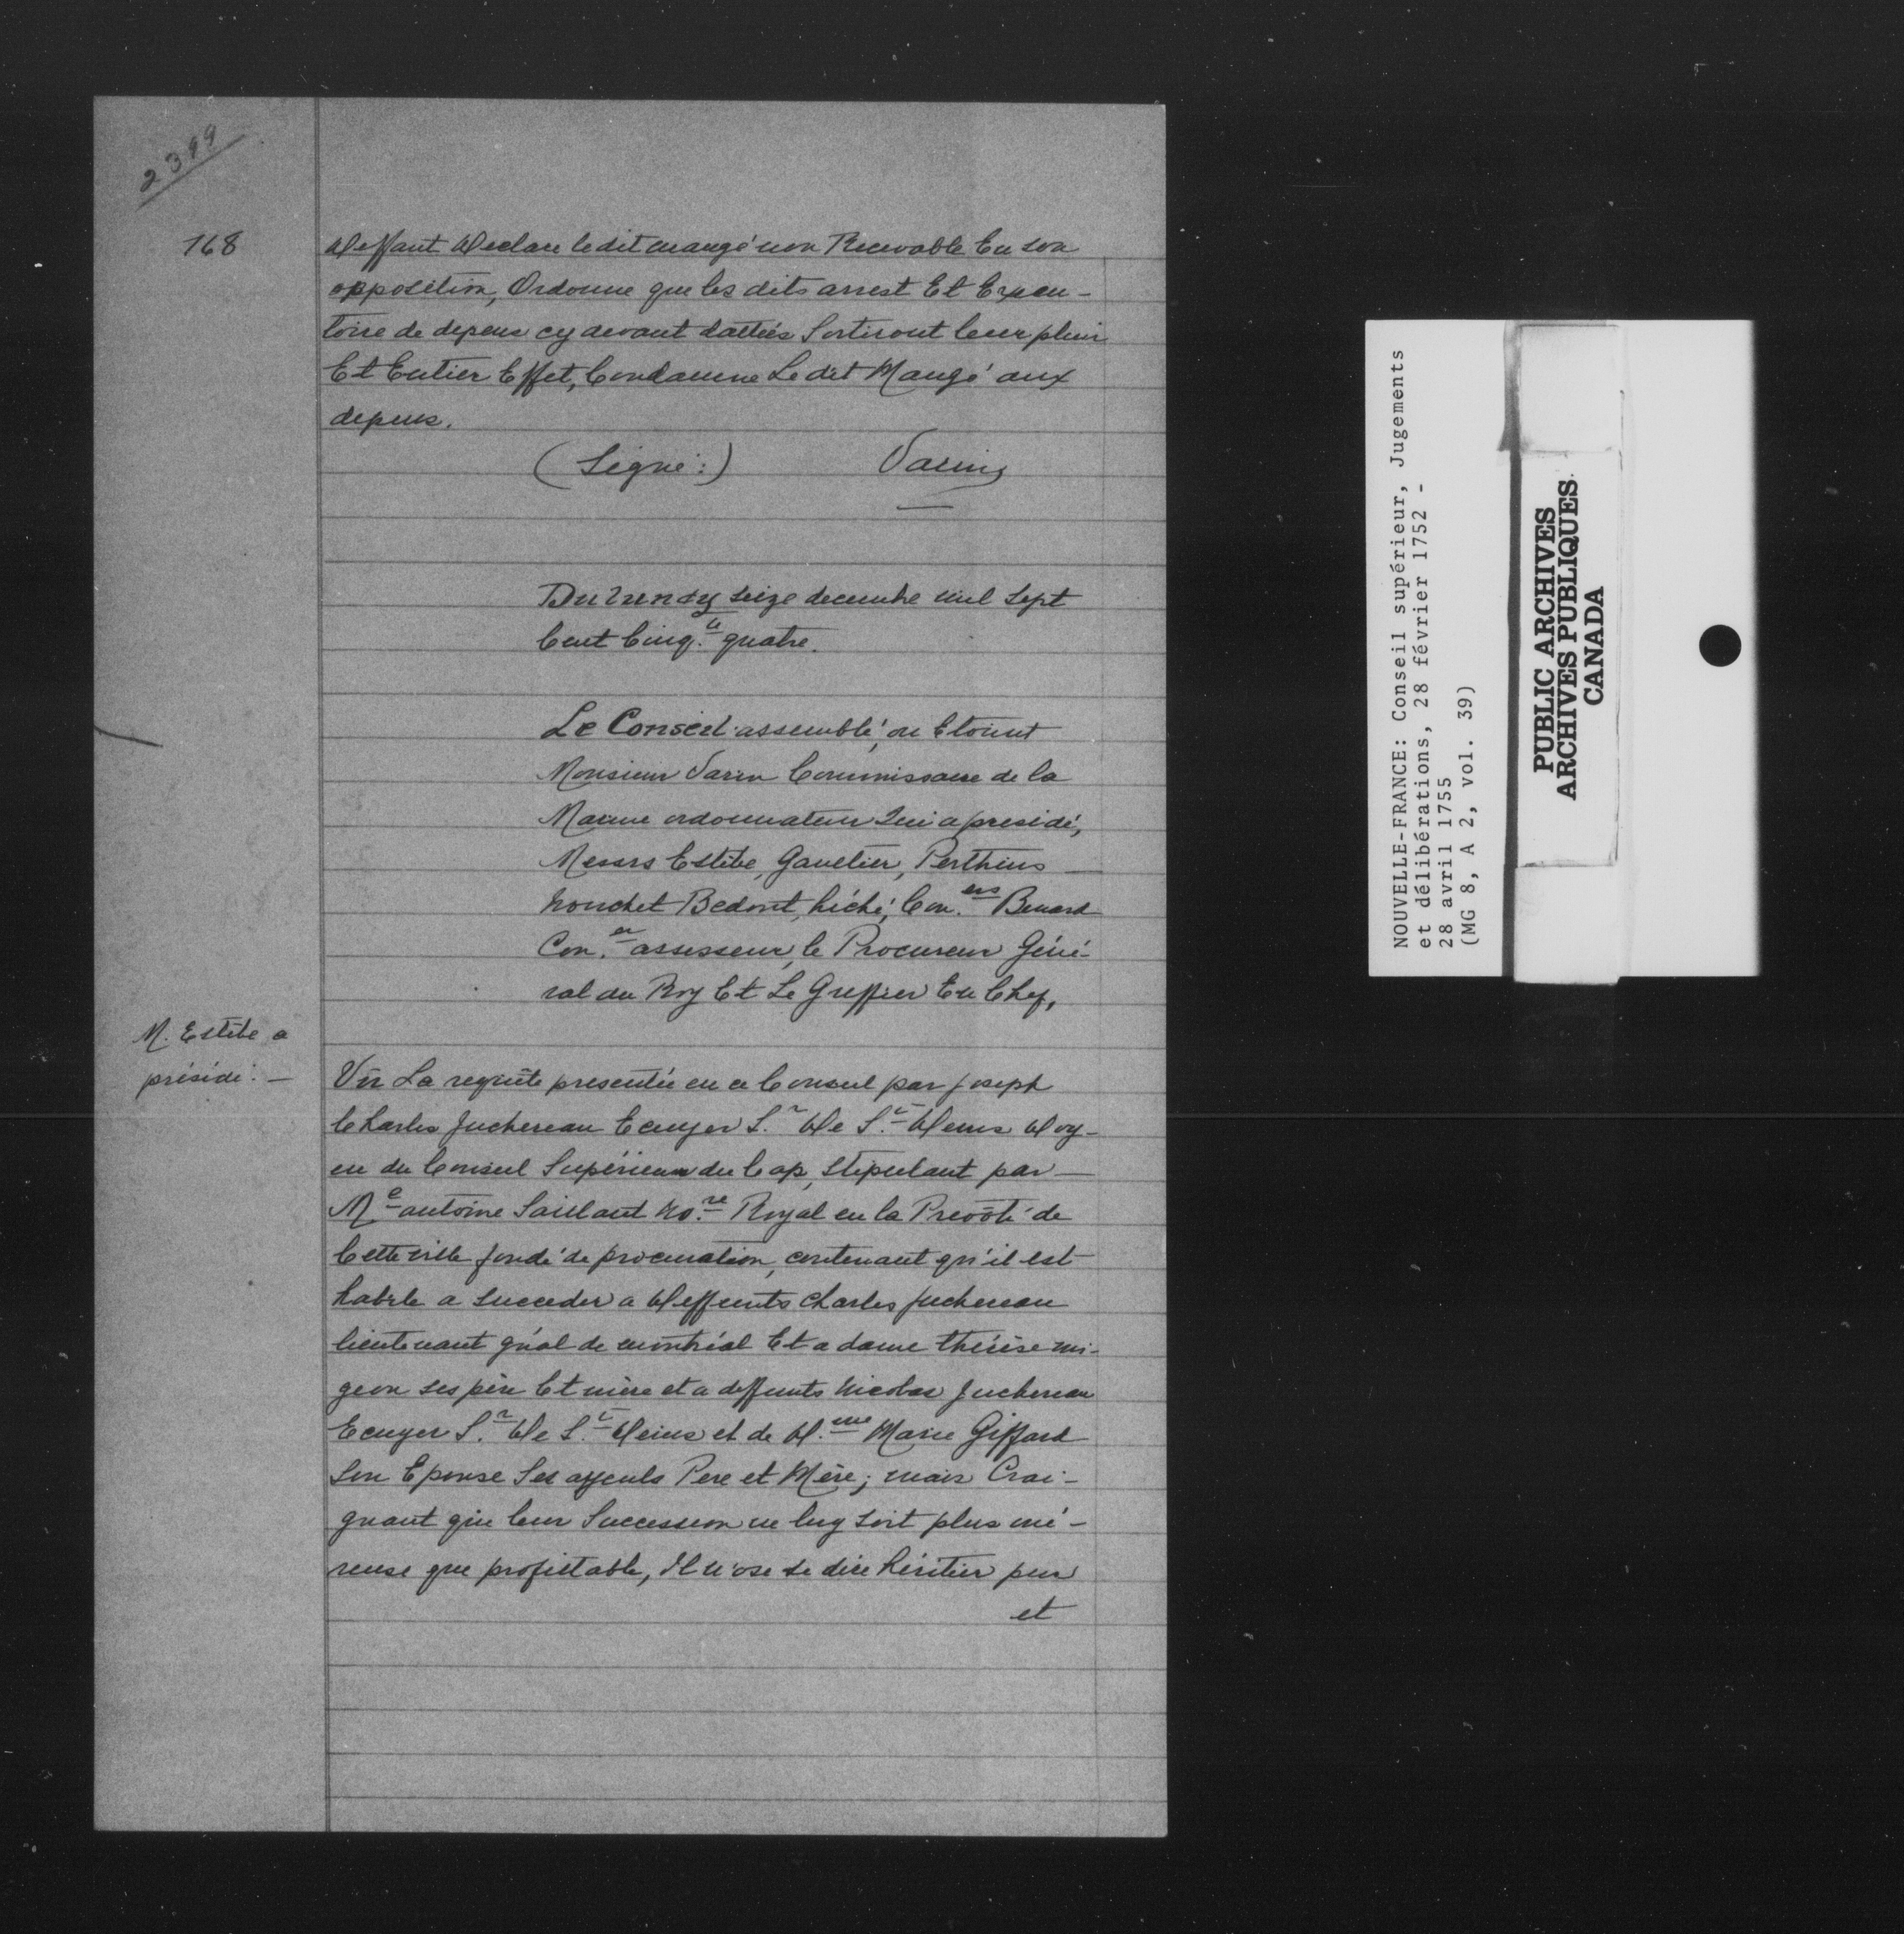 2399
168
Deffaut Declare ledit Maugé non Recevable En son
opposition, Ordonne que les dits arrest Et Execu-
toire de depens cy devant dattés Sortiront leur plein
Et Entier Effet, Condamne Le dit Maugé aux
depens.
(Signé:) Varin
Du Lundy seize decembre mil Sept
Cent Cinq.te quatre.
Le Conseil assemblé, ou Etoient
Monsieur Varin Commissaire de la
Marine ordonnateur Qui a presidé,
Messrs Estèbe, Gaultier, Perthuis
Nouchet Bedout, hiché, Con.ers Benard
Con.er assesseur, le Procureur Géné-
ral du Roy Et Le Greffier En Chef,
M. Estèbe a
présidé. —
Vû La requête presentée en ce Conseil par Joseph
Charles Juchereau Ecuyer S.r De S.t Denis Doy-
en du Conseil Supérieur du Cap, Stipulant par —
Me antoine Saillant No.re Royal en la Prevôté de
Cette ville fondé de procuration, contenant qu'il est
habile a succeder a Deffunts Charles Juchereau
lieutenant g'nal de montréal Et a dame thérèse mi-
geon ses père Et mère et a deffunts Nicolas Juchereau
Ecuyer S.r De S.t Denis et de D.me Marie Giffard
Son Epouse Ses ayeuls Pere et Mère; mais Crai-
gnant que leur Succession ne luy soit plus oné-
reuse que profitable, Il n'ose se dire héritier pur
et
NOUVELLE-FRANCE: Conseil supérieur, Jugements
et délibérations, 28 février 1752 -
28 avril 1755
(MG 8, A 2, vol. 39)
PUBLIC ARCHIVES
ARCHIVES PUBLIQUES
CANADA